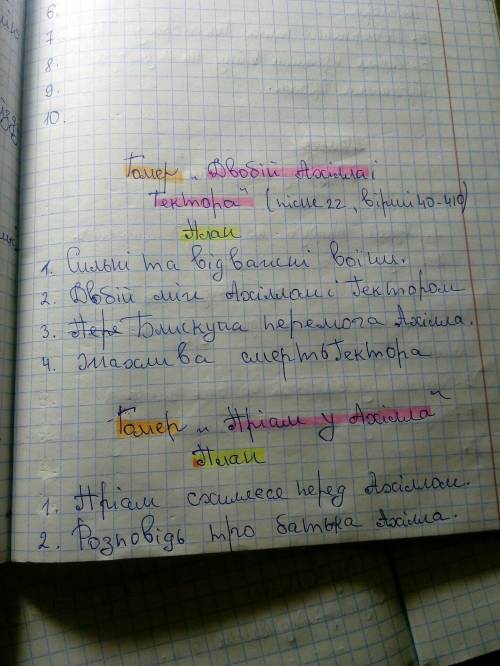 6.
7
8.
9.
10.
Гомер „ Двобій Ахілла і
Гектора" (пісня 22, вірші 40-410)
План
1. Сильні та відважні воїни.
2. Двобій між Ахіллом і Гектором
3. Блискуча перемога Ахілла.
4. Жахлива смерть Гектора
Гомер „ Пріам у Ахілла"
План
1. Пріам схиляєсе перед Ахіллом.
2. Розповідь про батька Ахілла.